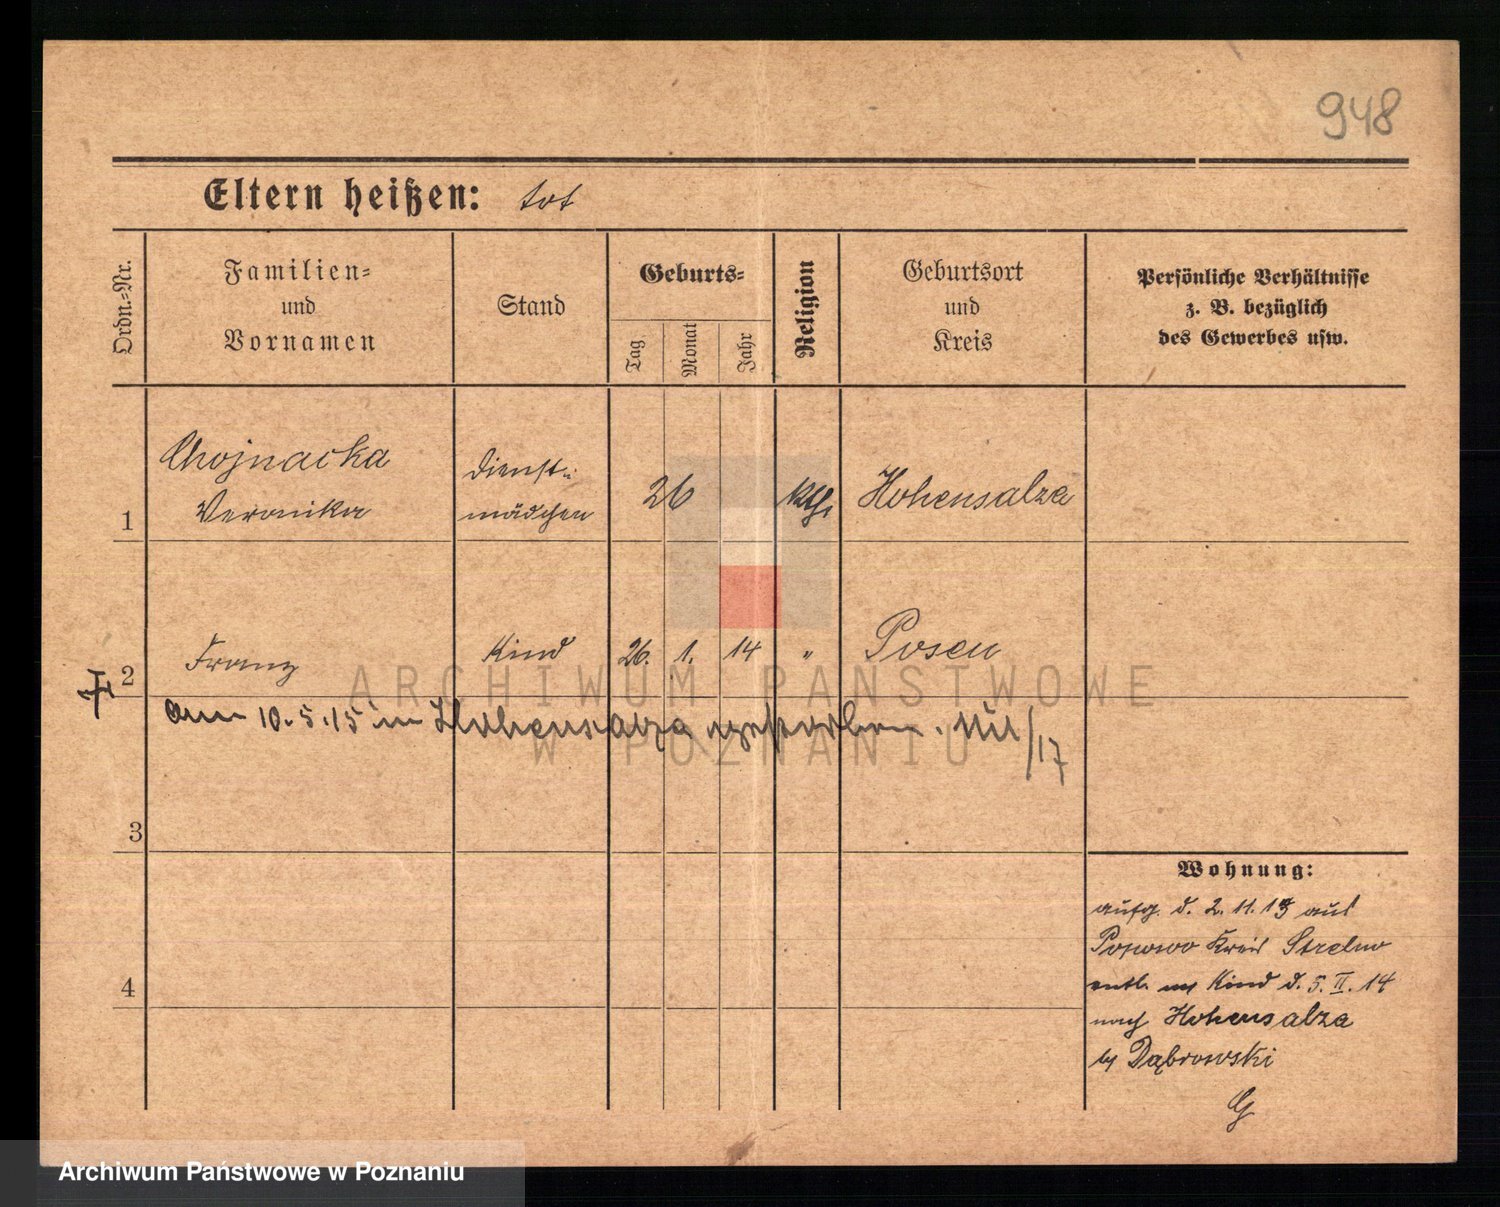 948
Eltern heißen: tot
Ordn.=Nr.
Familien=
und
Vornamen
Stand
Geburts=
Tag
Monat
Jahr
Religion
Geburtsort
und
Kreis
Persönliche Verhältnisse
z. B. bezüglich
des Gewerbes usw.
1
Chojnacka
Veronika
Dienst=
mädchen
26
kth.
Hohensalza
2
Franz
Kind
26. 1. 14
"
Posen
am 10.5.15 in Hohensalza gestorben.
/17
3
4
Wohnung:
aufg. d. 2. 11. 13 aus
Popowo Kreis Strelno
entl. m Kind d. 5. II. 14
nach Hohensalza
by Dąbrowski
G
ARCHIWUM PAŃSTWOWE
W POZNANIU
Archiwum Państwowe w Poznaniu